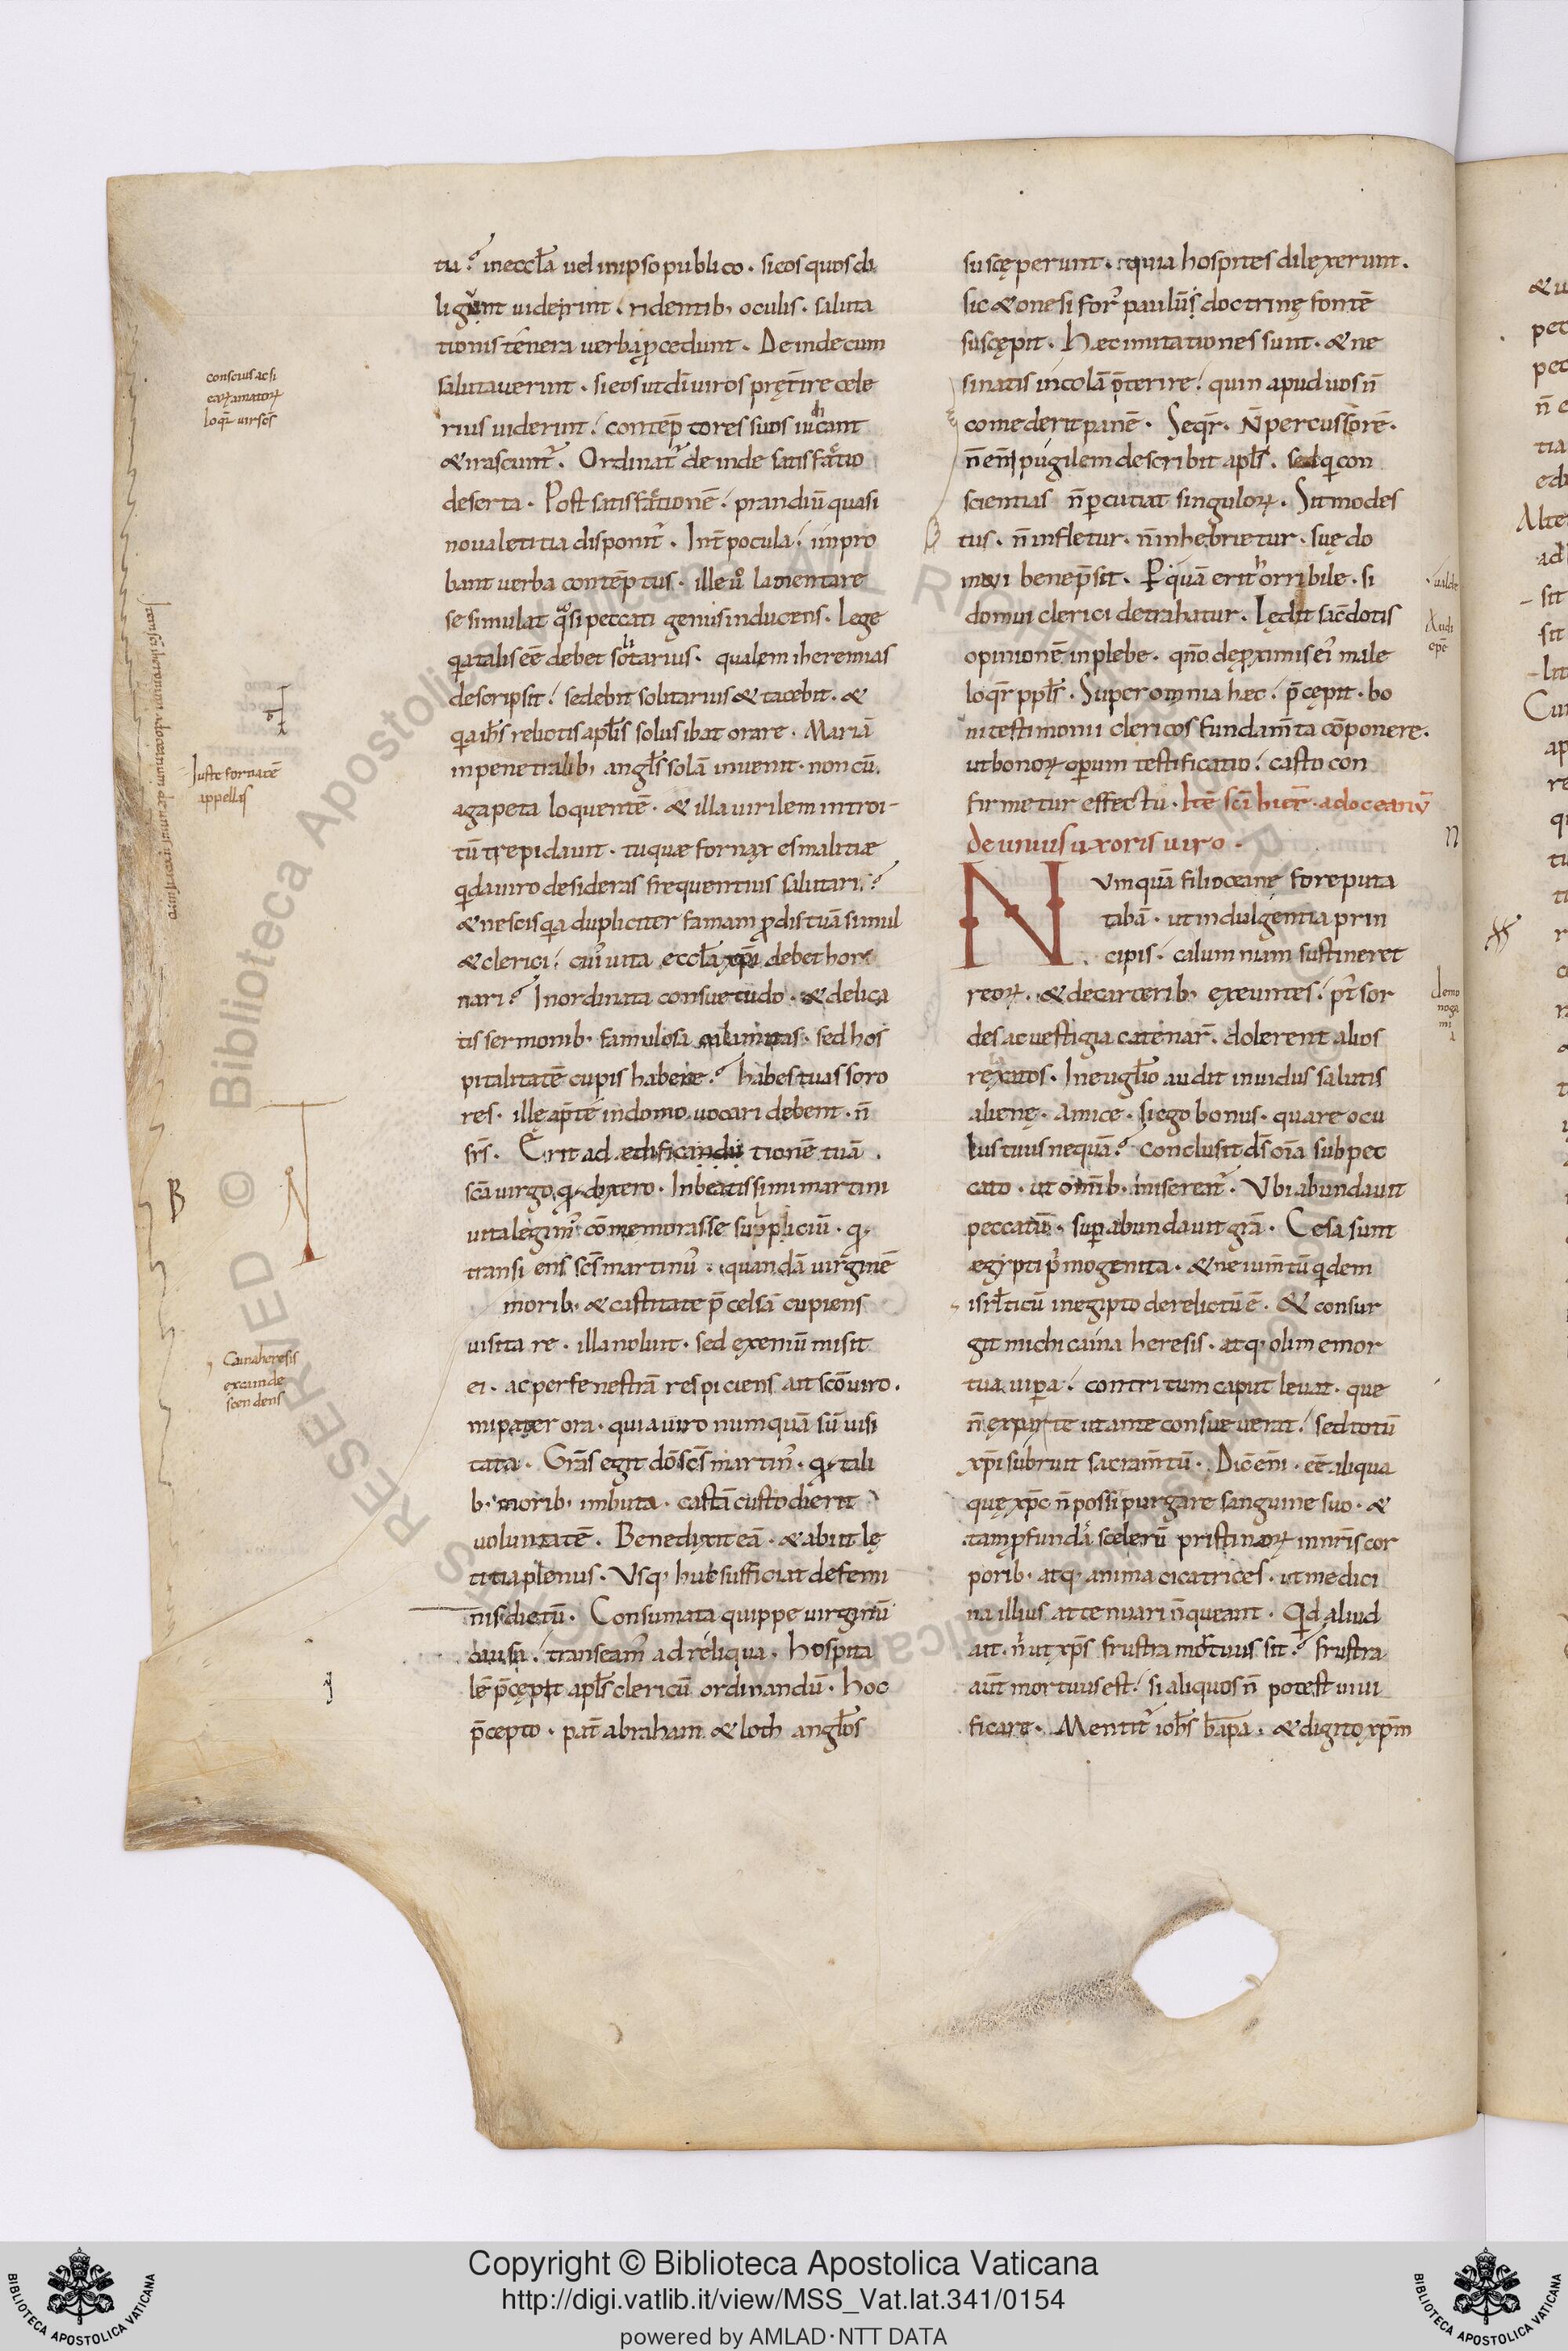 tu? in eccła uel in ipso publico. si eos quos di
ligunt uiderint. ridentib; oculis. saluta
tionis tenera uerba ꝓcedunt. Deinde cum
salutauerunt. si eos ut dn̄i uiros pręt̄ire cele
rius uiderint. contēptores suos iudicant
& irascunt᷑. Ordinat᷑ deinde satisfactio
deserta. Post satisfactionē. prandiū quasi
noua letitia disponit᷑. Int̄ pocula. impro
bant uerba contēptus. ille ů lamentare
se simulat quasi peccati genus inducens. Lege
qa talis eē debet solitarius. qualem iheremias
descripsit. sedebit solitarius & tacebit. &
qa ih̄s relictis aplīs solus ibat orare. Mariā
in penetralib; angłs solā inuenit. non cū
agapeta loquentē. & illa uirilem introi-
tū trepidauit. tu quæ fornax es malitiæ
qd a uiro desideras frequentius salutari?
& nescis qa dupliciter famam ꝓdis tuā simul
& clerici. cui᷒ uita eccłā xp̄i debet hor
nari? Inordinata consuetudo. & delica
tis sermonib. famulosa calumitas. sed hos
pitalitatē cupis habere? habes tuas soro
res. ille ap̄te in domo uocari debent. n̄
frs̄. Erit ad edificandū tionē tuā.
scā uirgo. q dixero. In beatissimi martini
uita legim᷒ cōmemorasse suppliciū. q
transiens scs̄ martinus. quandā uirginē
morib; & castitate p̄celsā cupiens
uisitare. illa noluit. sed exeniū misit
ei. ac per fenestrā respiciens ait scō uiro.
mi pater ora. quia uiro numquā sū uisi
tata. Grās egit dō scs̄ martin᷒. q tali
b; morib; imbuta. castā custodierit
uoluntatē. Benedixit eā. & abiit lę
titia plenus. Vsq; huc sufficiat de femi
nis dictū. Consumata quippe uirginū
causa. transeam᷒ ad reliqua. hospita
lē p̄cepit apłs clericū ordinandū. hoc
p̄cepto. pat̄ abraham & loth angłos
suscęperunt. quia hospites dilexerunt.
sic & onesifor᷒ paulū doctrinę fontē
suscępit. Hæc imitationes sunt. & ne
sinatis incolā p̄terire. quin apud uos n̄
comederit panē. Seqr̄. N̄ percussorē.
n̄ enī pugilem describit apłs. sed qi con
scientias n̄ ꝑcutiat singuloꝝ. Sit modes
tus. n̄ infletur. n̄ inhebrietur. suę do
mui bene p̄sit. Pquā erit horribile. si
domui clerici detrahatur. Lędit sac̄dotis
opinionē in plebe. qn̄o de ꝓximis ei᷒ male
loqr̄ ppłs. Super omnia hęc. p̄cępit. bo
ni testimonii clericos fundam̄ta cōponere.
ut bonoꝝ operum testificatio. casto con
firmetur effectu. Itē scī hier̄. ad oceanū
de unius uxoris uiro.
Numquā fili oceanę fore puta
tibā. ut indulgentia prin
cipis. calumniam sustineret
reoꝝ. & de carcerib; exeuntes. p̄t sor
des ac uestigia catenar̄. dolerent alios
relaxatos. In euglīo audit inuidus salutis
alienę. Amice. si ego bonus. quare ocu
lus tuus nequā? conclusit ds̄ oīa sub pec
cato. ut om̄ib; miseret᷑. Vbi abundauit
peccatū. suꝑabundauit grā. Cesa sunt
ægypti p̄mogenita. & ne ium̄tū qidem
isrłticū in egipto derelictū ē. & consur
git michi caina heresis. atq; olim emor
tua uiꝑa. contritum caput leuat. que
n̄ ex parte ut ante consueuerat. sed totū
xp̄i subruit sacram̄tū. Dic̄ enī. eē aliqua
quę xp̄c n̄ possi purgare sanguine suo. &
tam ꝓfundas scelerū pristinoꝝ inhrīs cor
porib; atq; anima cicatrices. ut medici
na illius attenuari n̄ queant. Qd aliud
ait. n̄ ut xp̄s frustra mortuus sit? frustra
aūt mortuus est. si aliquos n̄ potest uiui
ficare. Mentit᷑ ioh̄s bap̄a. & digito xp̄m
conscius ac si
earꝝ amatorꝝ
loqr̄ uir scs̄
Juste fornacē
appellas
B
Caina heresis
ex cain de
scendens
demo
noga
mi
a
n
Copyright © Biblioteca Apostolica Vaticana
http://digi.vatlib.it/view/MSS_Vat.lat.341/0154
powered by AMLAD·NTT DATA
BIBLIOTECA APOSTOLICA VATICANA
BIBLIOTECA APOSTOLICA VATICANA